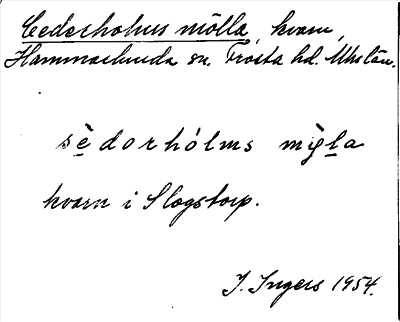 Cederholms mölla, kvarn,
Hammarlunda sn. Frosta hd. Mhs län.
sèdorhólms mÿ̀la
kvarn i Slogstorp.
I. Ingers 1954.